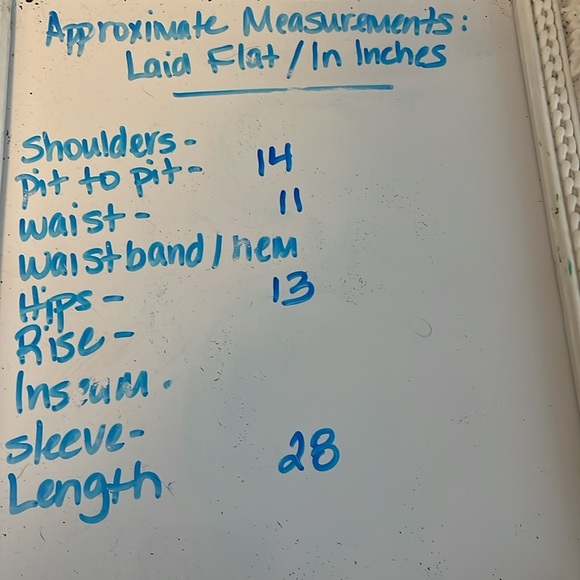 Approximate Measurements:
Laid Flat / In Inches
Shoulders-
pit to pit- 14
waist- 11
waistband / hem
Hips- 13
Rise-
Inseam-
sleeve-
Length 28